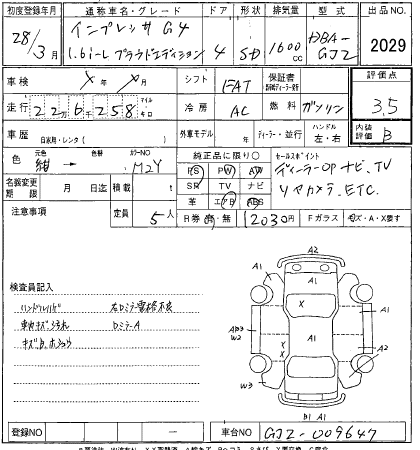 初度登録年月 通称車名・グレード ドア 形状 排気量 型式 出品NO.
28/3月 インプレッサ G4 1.6i-L プラウドエディション 4 SD 1600cc DBA-GJ2 2029
車検 X年 X月 シフト FAT 保証書 評価点
走行 22万6千258 キロ 冷房 AC 燃料 ガソリン 3.5
車歴 自家用・レンタ( ) 外車モデル 年 ディーラー・並行 ハンドル 左・右 内装評価 B
色 元色 紺 → 色替 カラーNO M2Y 純正品に限り〇 セールスポイント
PS PW AW ディーラーOP ナビ、TV
名義変更期限 月 日迄 積載 t SR TV ナビ リヤカメラ、ETC.
革 エアB ABS
注意事項 定員 5人 R券 有・無 12030円 Fガラス キズ・A・X要す
検査員記入
A2
A1
ハンドルスレ 右Dミラー電格不良
車内キズ汚れ DミラーA
キズ、
X
A1
A1
AB3
W2
X
X
A2
W3 A1
B1 A1
登録NO — 車台NO GJ2-009647